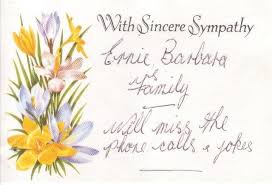 With Sincere Sympathy
Ernie Barbara
&
Family
Will miss the
phone calls & jokes